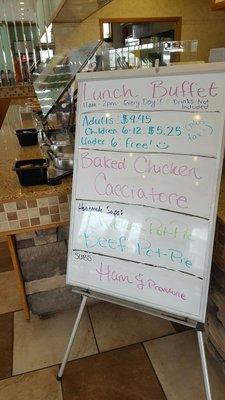 Lunch Buffet
11am - 2pm Every Day!! Drinks Not Included
Adults $9.45
Children 6-12 $5.25
Under 6 free!
(Plus tax)
Baked Chicken
Cacciatore
Homemade Soups:
Pot-Pie
Beef Pot-Pie
SUBS:
Ham &
Provolone